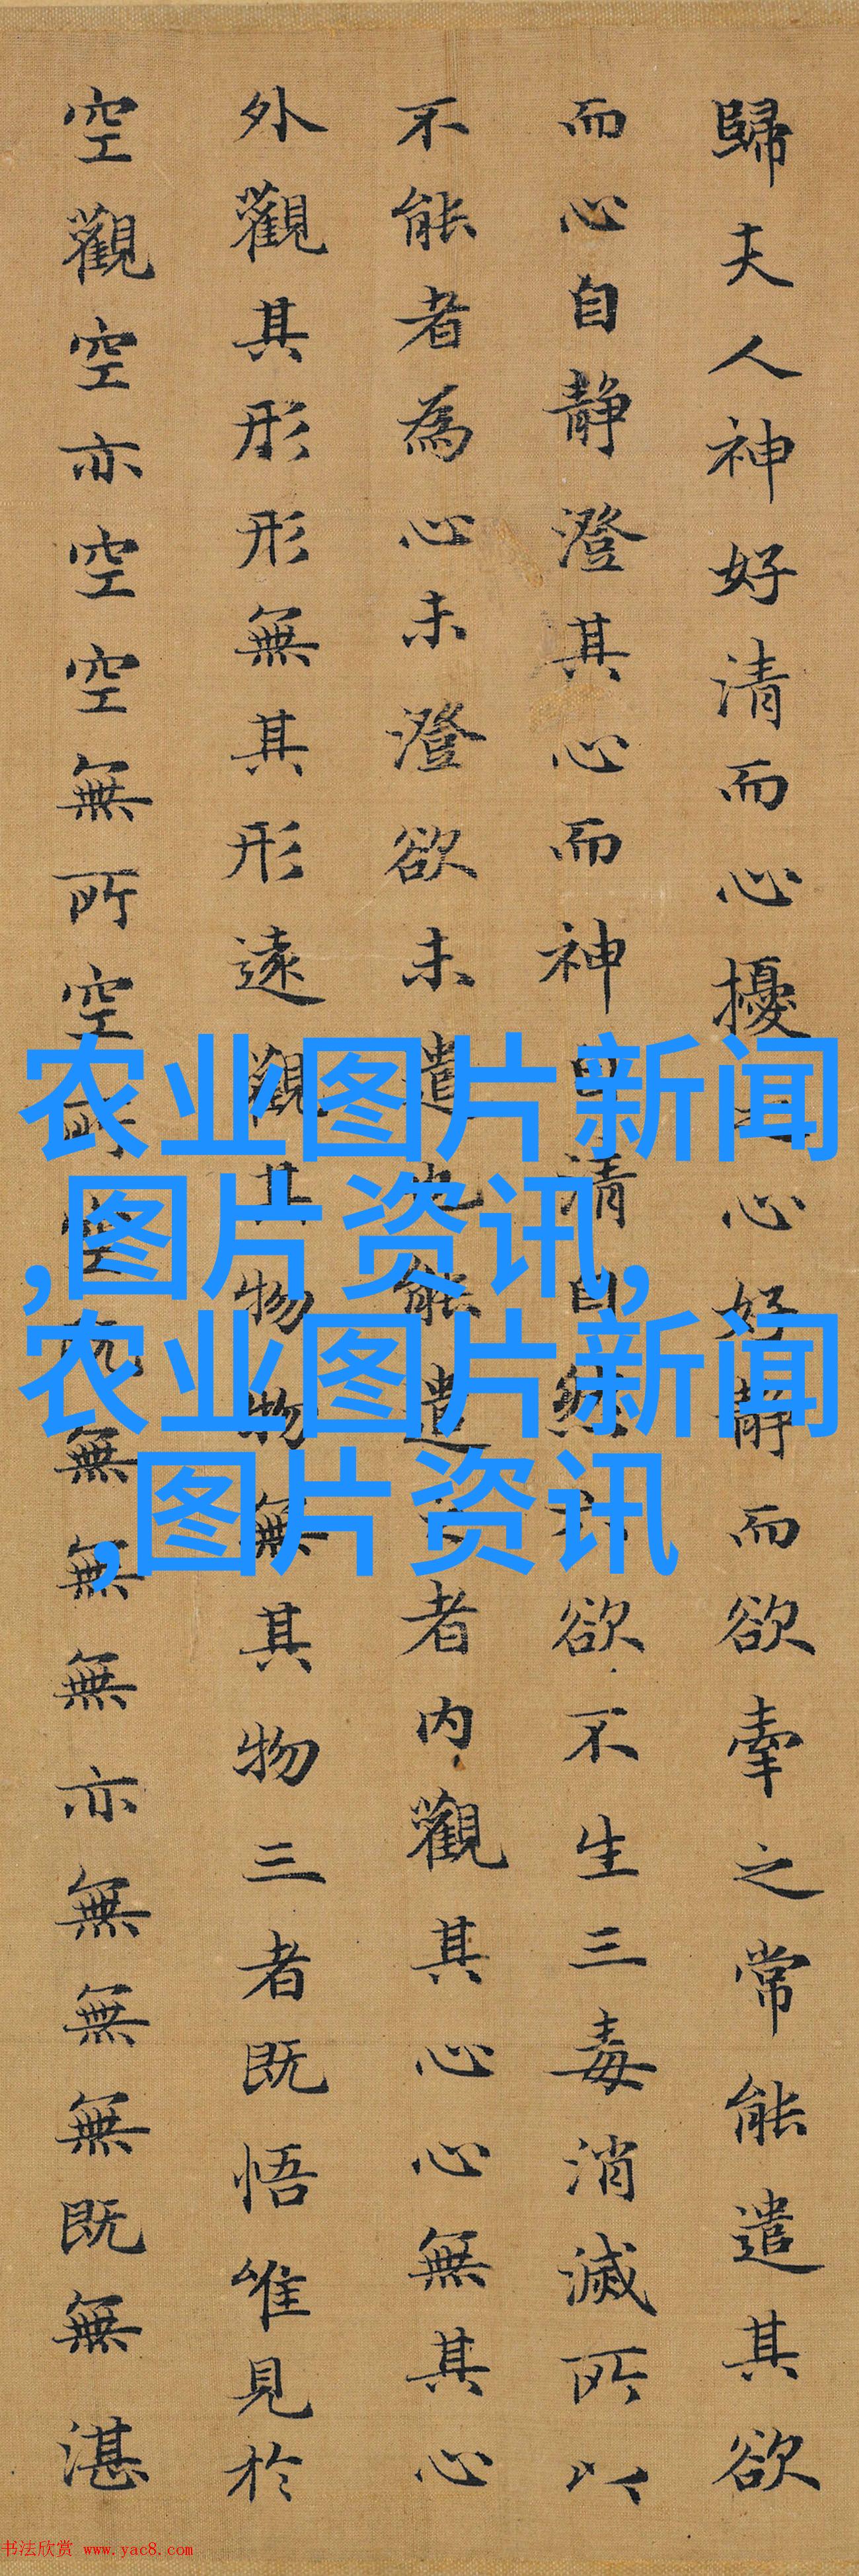 歸夫人神好清而心擾之心好静而欲牽之常能遣其欲
而心自静澄其心而神自清自然六欲不生三毒消滅所以
不能者為心未澄欲未遣也能遣之者内觀其心心無其心
外觀其形形無其形遠觀其物物無其物三者既悟唯見於
空觀空亦空空無所空所空既無無無亦無無無既無湛
农业图片新闻
,图片资讯,
农业图片新闻
,图片资讯
书法欣赏 www.yac8.com